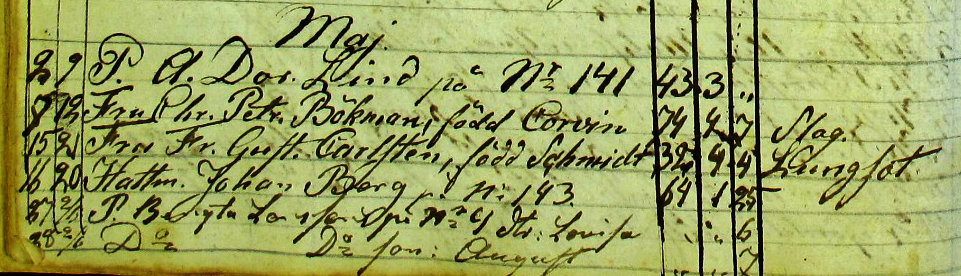 Maj.
2 9 P. A. Dor. Lind på Nr 141 43 3 "
Fru Chr. Petr. Bökman, född Corvin 74 4 7 Slag.
15 21 Fru Fr. Gust. Carlsten, född Schmidt 32 4 4 Lungsot
16 20 Hattm. Johan Borg på Nr 143. 64 1 25
27 P. Bengta på Nr dtr: Lovisa " " 6
28 Do Do son: August " " 7